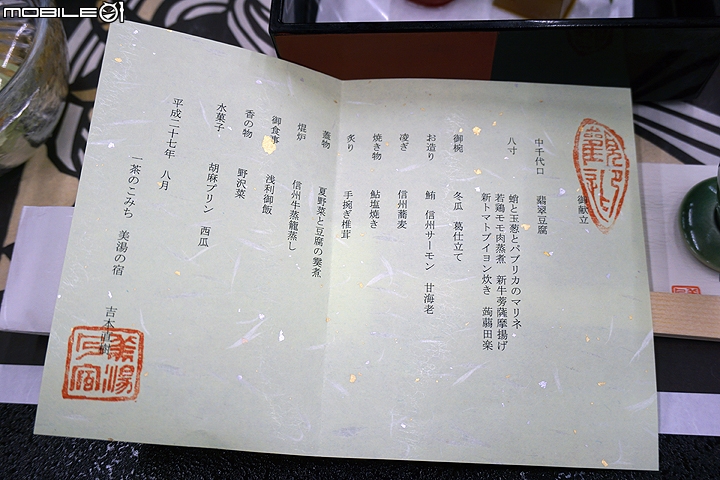 MOBILE01
御献立
中千代口 翡翠豆腐
八寸 蛸と玉葱とパプリカのマリネ
若鶏モモ肉蒸煮 新牛蒡薩摩揚げ
新トマトブイヨン炊き 蒟蒻田楽
御椀 冬瓜 葛仕立て
お造り 鮪 信州サーモン 甘海老
凌ぎ 信州蕎麦
焼き物 鮎塩焼き
炙り 手捥ぎ椎茸
蓋物 夏野菜と豆腐の霙煮
焜炉 信州牛蒸籠蒸し
御食事 浅利御飯
香の物 野沢菜
水菓子 胡麻プリン 西瓜
平成二十七年 八月
一茶のこみち 美湯の宿
吉本
美湯
宿